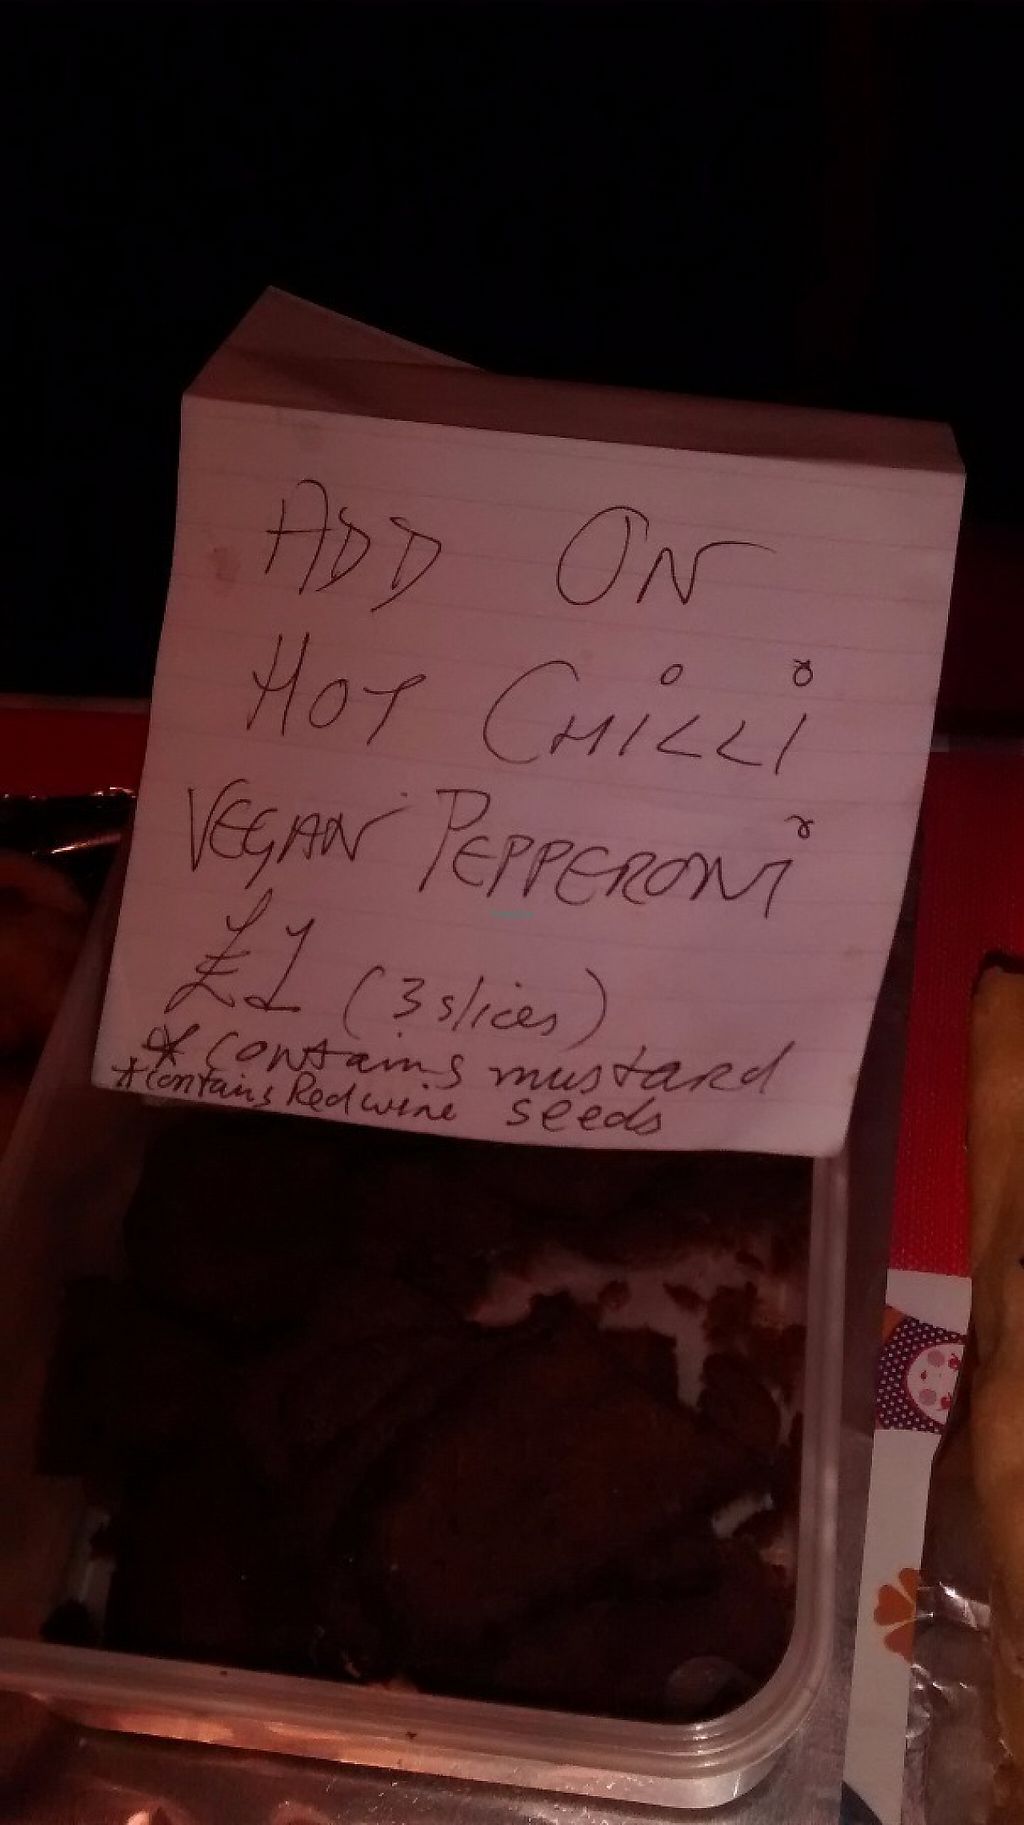 ADD ON
HOT CHiLLi
VEGAN PEPPERONi
£1 (3 slices)
* contains mustard
seeds
* contains Red wine